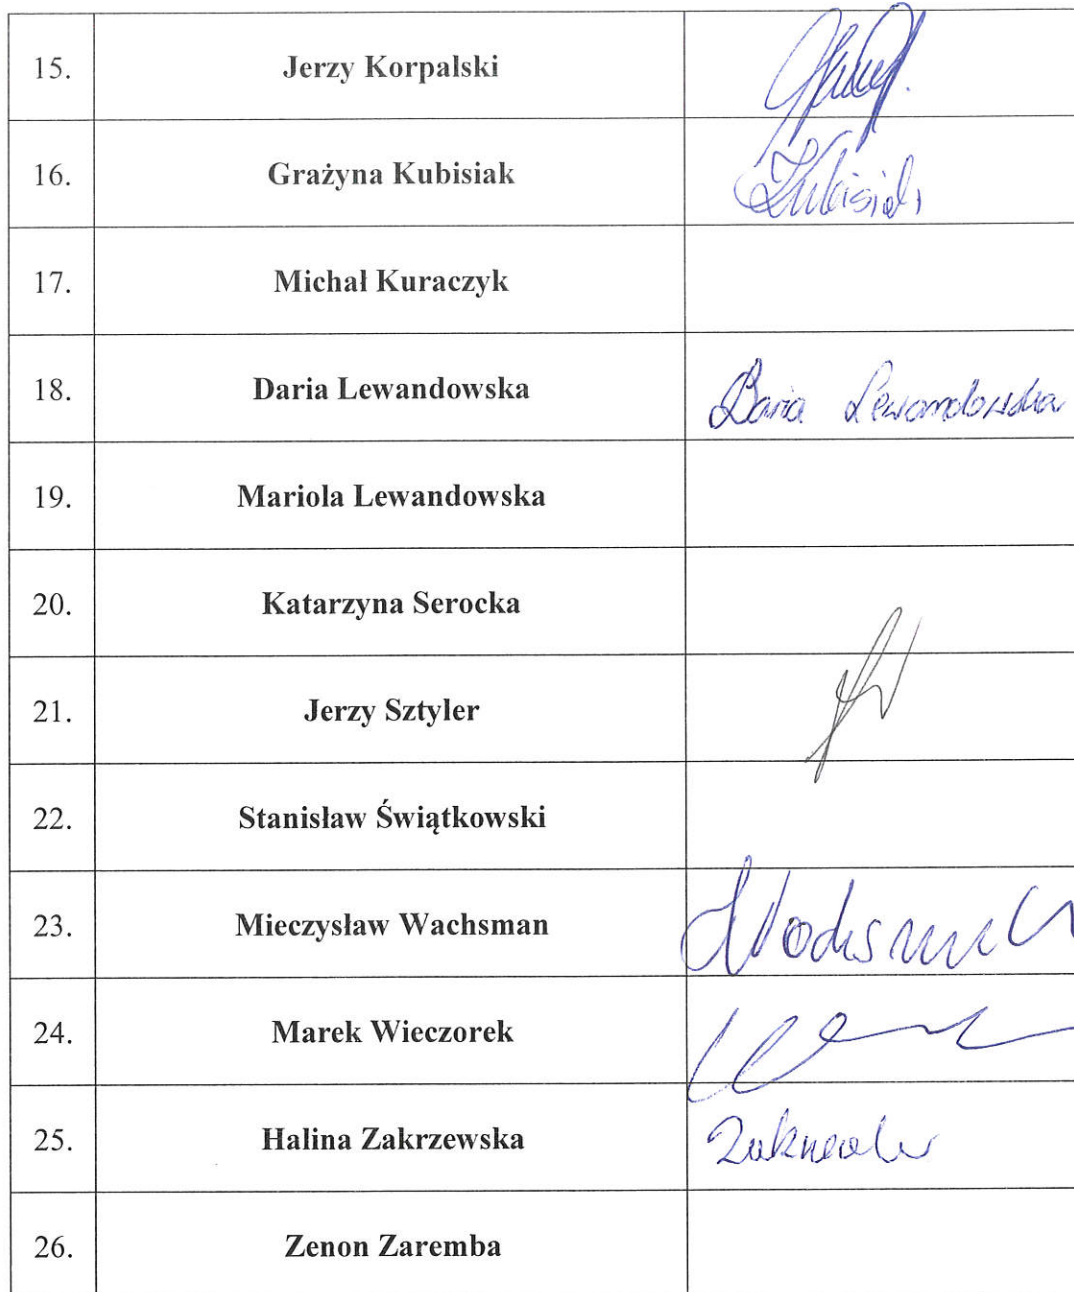 15. Jerzy Korpalski
16. Grażyna Kubisiak Kubisiak
17. Michał Kuraczyk
18. Daria Lewandowska Daria Lewandowska
19. Mariola Lewandowska
20. Katarzyna Serocka
21. Jerzy Sztyler
22. Stanisław Świątkowski
23. Mieczysław Wachsman
24. Marek Wieczorek
25. Halina Zakrzewska
26. Zenon Zaremba